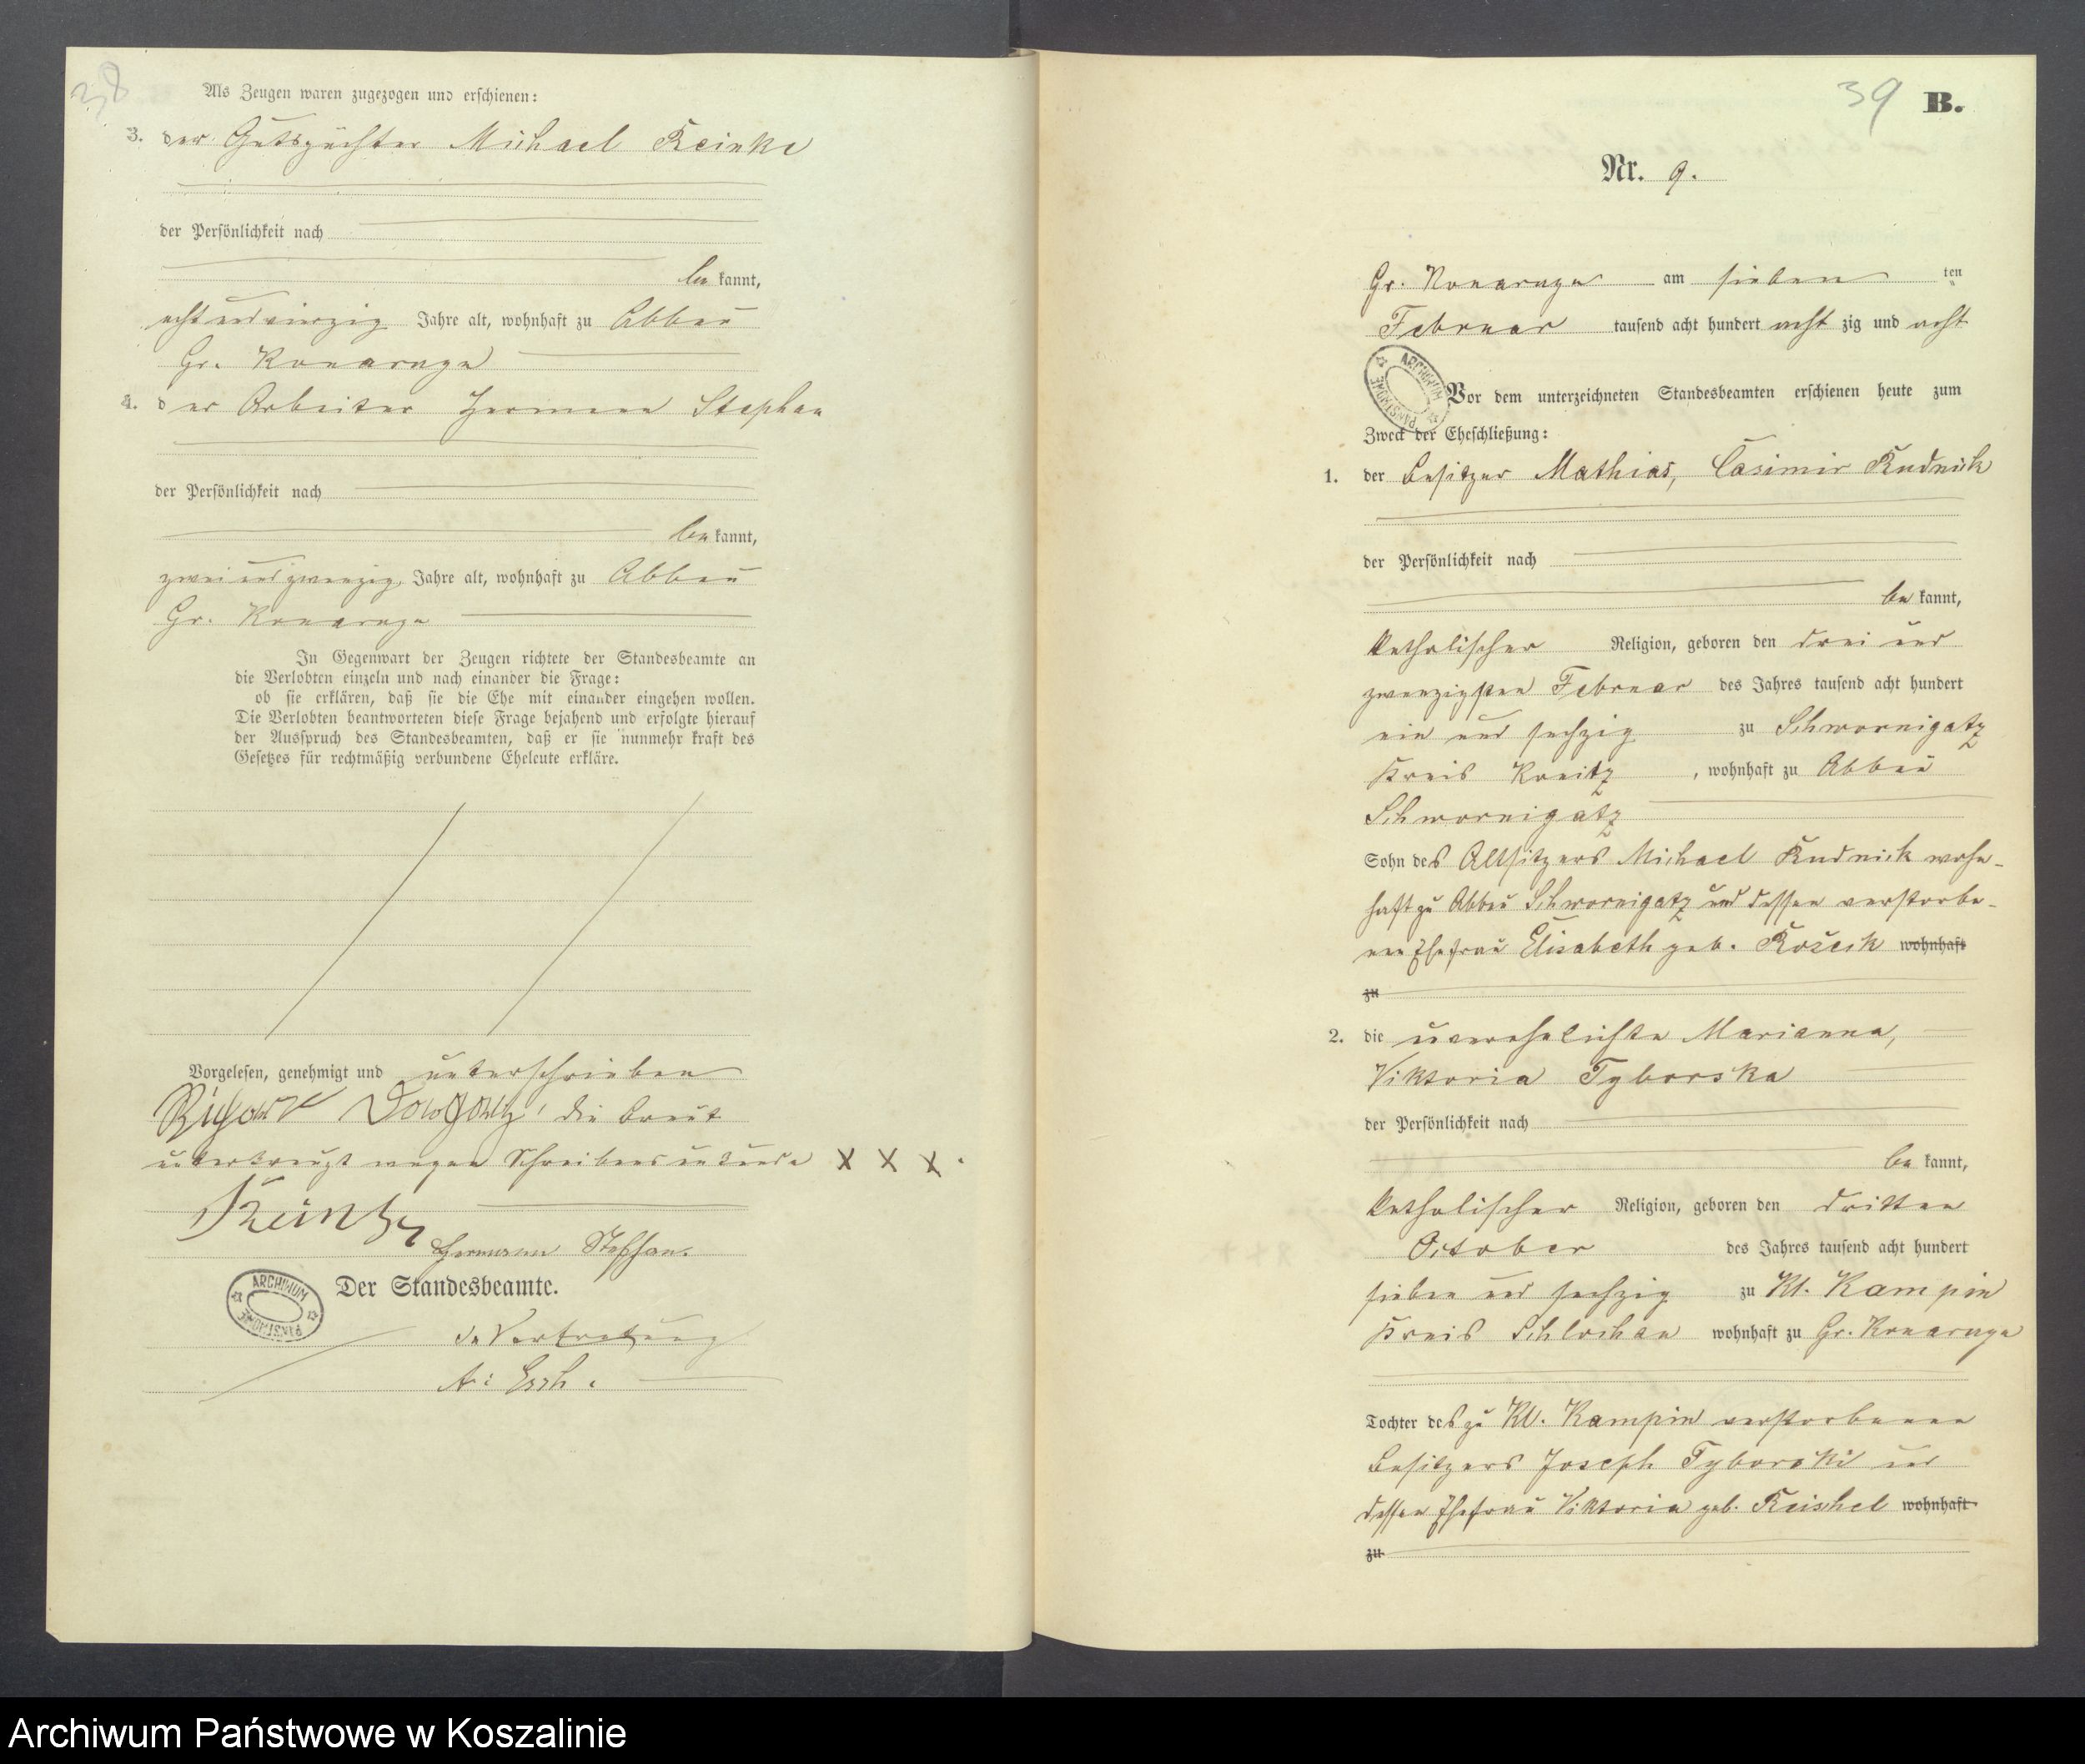 38
Als Zeugen waren zugezogen und erschienen:
3. der Gutspächter Michael Reinke
der Persönlichkeit nach
be kannt,
acht und vierzig Jahre alt, wohnhaft zu Abbau
Gr. Konarczyn
4. der Arbeiter Hermann Stephan
der Persönlichkeit nach
be kannt,
zwei und zwanzig Jahre alt, wohnhaft zu Abbau
Gr. Konarczyn
In Gegenwart der Zeugen richtete der Standesbeamte an
die Verlobten einzeln und nach einander die Frage:
ob sie erklären, daß sie die Ehe mit einander eingehen wollen.
Die Verlobten beantworteten diese Frage bejahend und erfolgte hierauf
der Ausspruch des Standesbeamten, daß er sie nunmehr kraft des
Gesetzes für rechtmäßig verbundene Eheleute erkläre.
Vorgelesen, genehmigt und unterschrieben
die Braut
unterkreuzt wegen Schreibensunkunde X X X.
Reinke
Hermann Stephan.
ARCHIWUM PAŃSTWOWE
Der Standesbeamte.
In Vertretung
39 B.
Nr. 9.
Gr. Konarczyn am sieben ten
Februar tausend acht hundert acht zig und acht
ARCHIWUM PAŃSTWOWE
Vor dem unterzeichneten Standesbeamten erschienen heute zum
Zweck der Eheschließung:
1. der Besitzer Mathias, Casimir Rudnick
der Persönlichkeit nach
be kannt,
katholischer Religion, geboren den drei und
zwanzigsten Februar des Jahres tausend acht hundert
ein und sechzig zu Schwornigatz
Kreis Konitz, wohnhaft zu Abbau
Schwornigatz
Sohn des Altsitzers Michael Rudnick wohn-
haft zu Abbau Schwornigatz und dessen verstorbe-
nen Ehefrau Elisabeth geb. wohnhaft
zu
2. die unverehelichte Marianna,
Viktoria Tyborska
der Persönlichkeit nach
be kannt,
katholischer Religion, geboren den dritten
October des Jahres tausend acht hundert
sieben und sechzig zu Kl. Kampin
Kreis Schlochau wohnhaft zu Gr. Konarczyn
Tochter des zu Kl. Kampin verstorbenen
Besitzers Joseph Tyborski und
dessen Ehefrau Viktoria geb. wohnhaft
zu
Archiwum Państwowe w Koszalinie